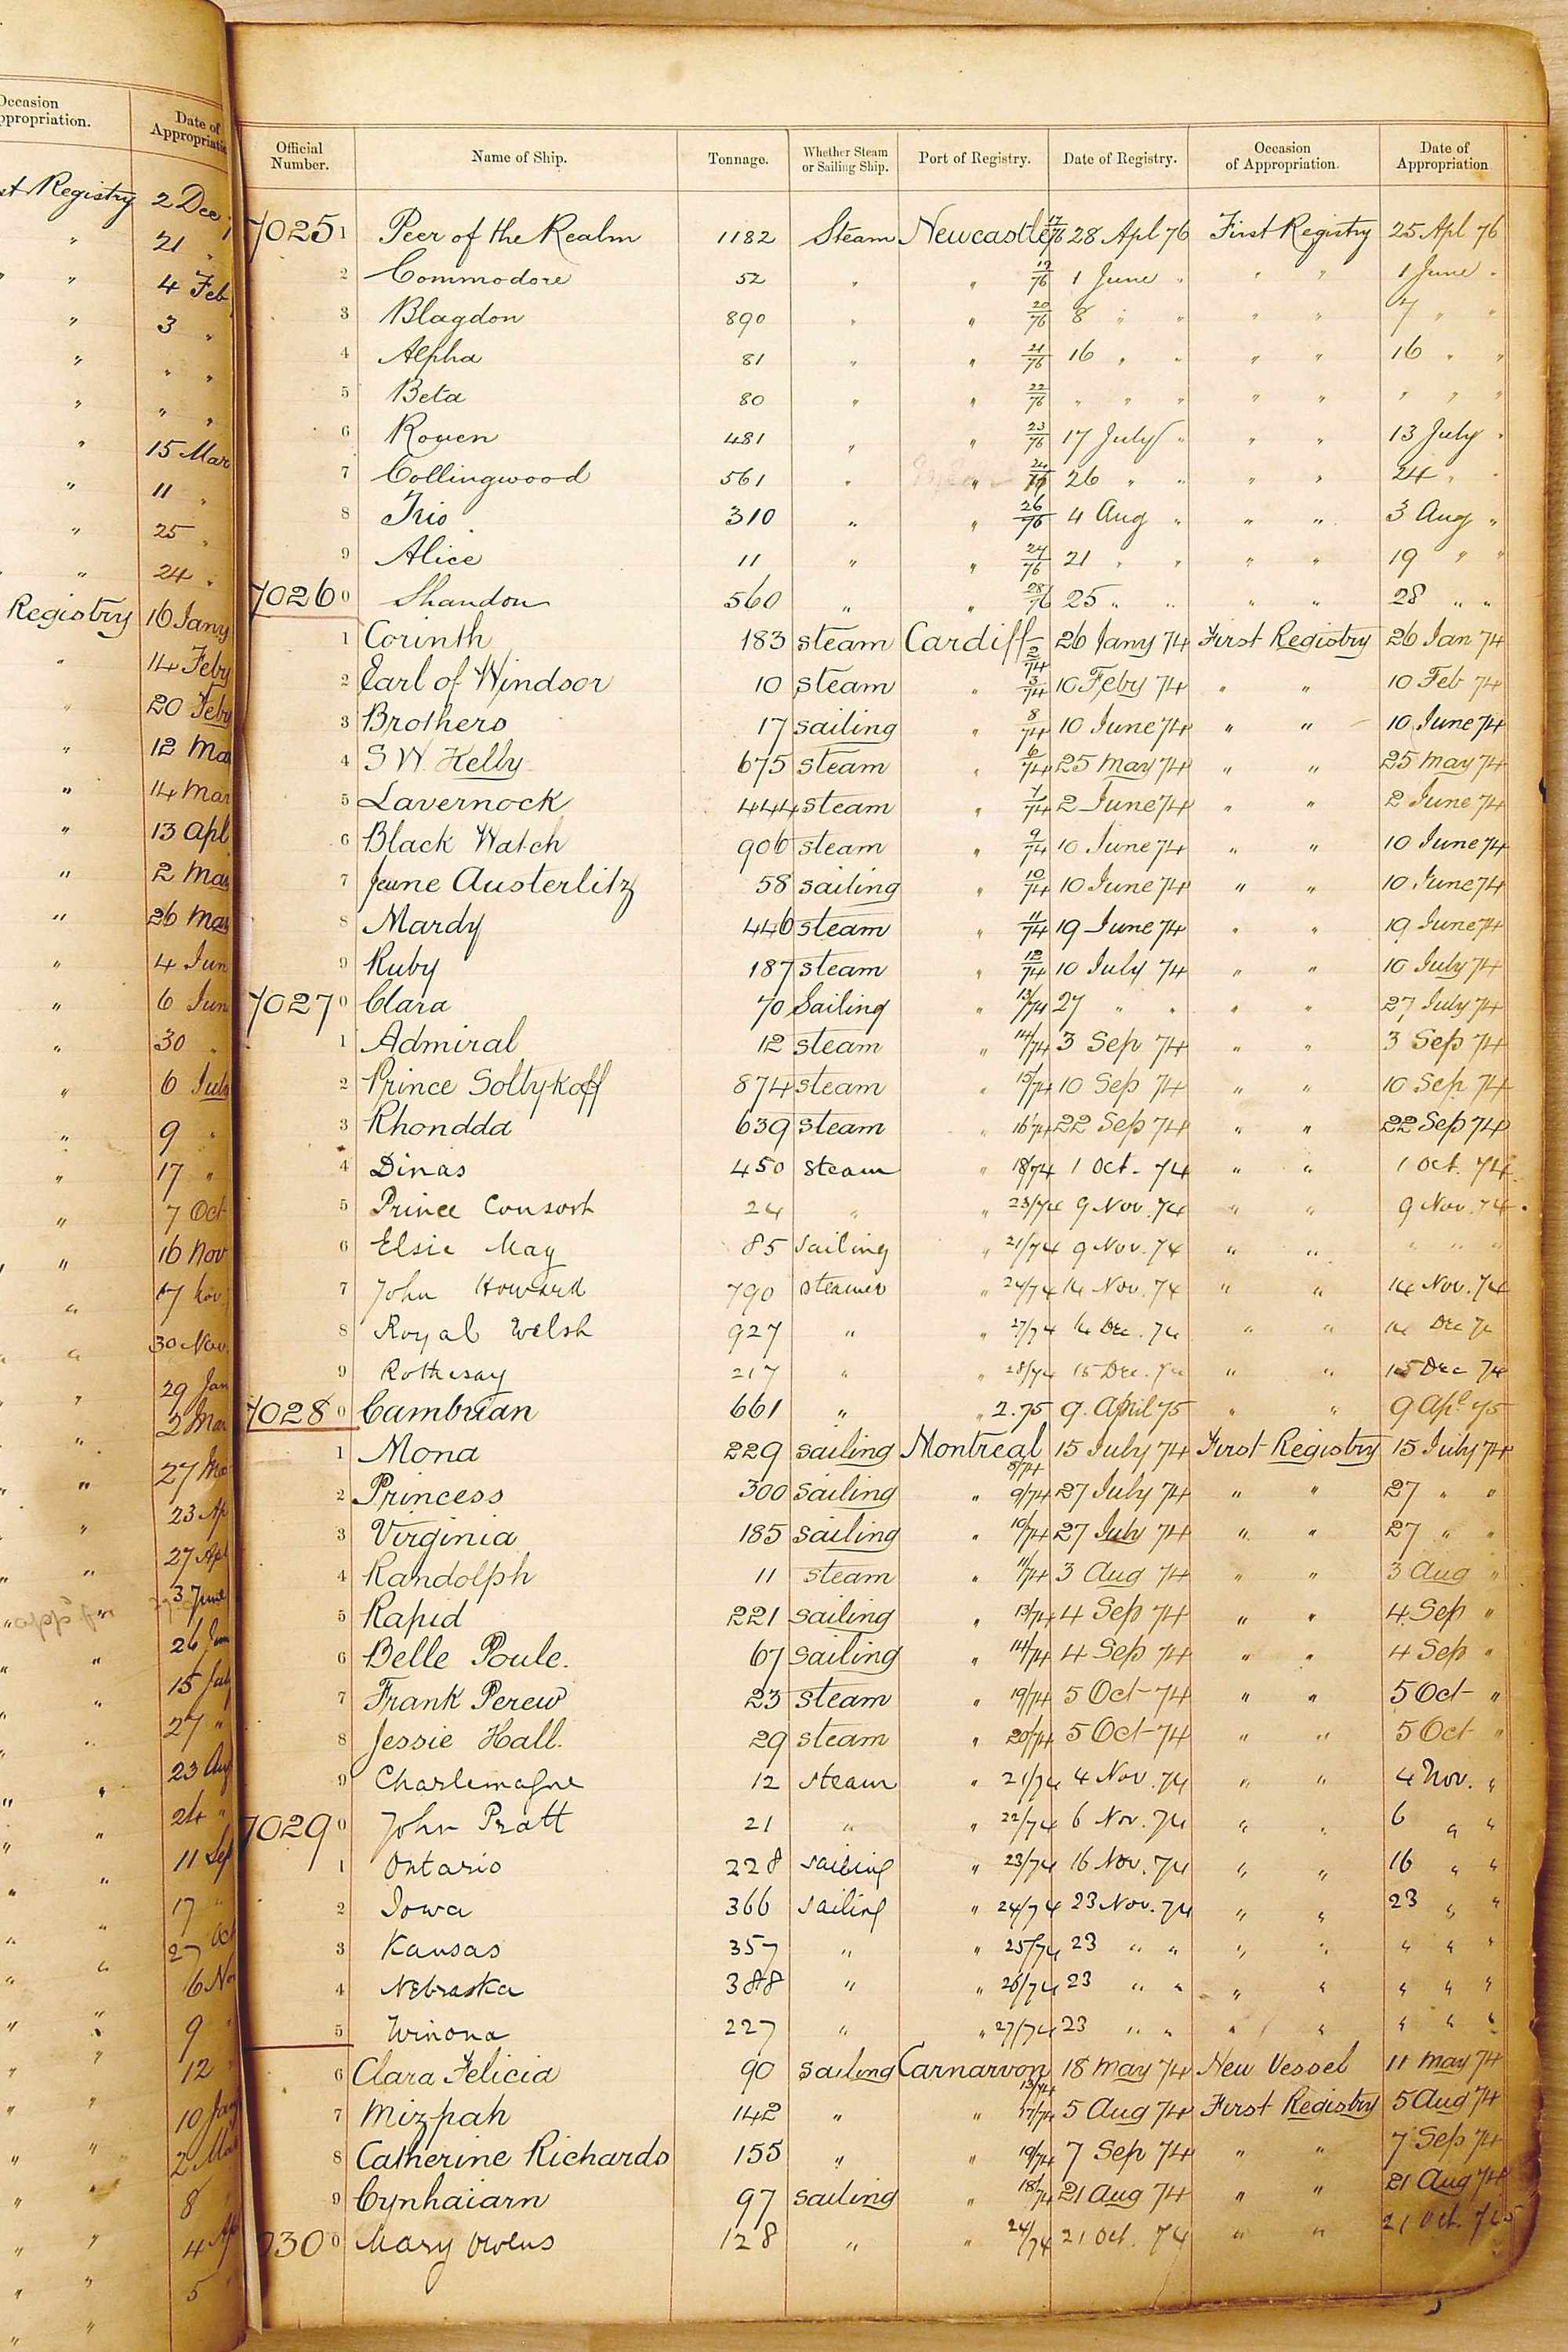 Occasion
Appropriation.
Date of
Appropriation
Registry 2 Dec
" 21 "
" 4 Feb
" 3 "
" " "
" " "
" 15 Mar
" 11 "
" 25 "
" 24 "
Registry 16 Jany
" 14 Feby
" 20 Feby
" 12 Mar
" 14 Mar
" 13 Apl
" 2 May
" 26 May
" 4 Jun
" 6 Jun
" 30 "
" 6 July
" 9 "
" 17 "
" 7 Oct
" 16 Nov
" 17 Nov
" 30 Nov
" 29 Jan
" 2 Mar
" 27 Mar
" 23 Ap
" 27 Apl
" 3 June
" 26 Jun
" 15 July
" 27 "
" 23 Aug
" 24 "
" 11 Sep
" 17 "
" 27 Oct
" 6 No
" 9 "
" 12 "
" 10 Jan
" 2 Mar
" 8 "
" 4 Ap
" 5 "
Official Number. Name of Ship. Tonnage. Whether Steam or Sailing Ship. Port of Registry. Date of Registry. Occasion of Appropriation. Date of Appropriation
7025 1 Peer of the Realm 1182 Steam Newcastle 17/76 28 Apl 76 First Registry 25 Apl 76
2 Commodore 52 " " 19/76 1 June " " " 1 June "
3 Blagdon 890 " " 20/76 8 " " " " 7 " "
4 Alpha 81 " " 21/76 16 " " " " 16 " "
5 Beta 80 " " 22/76 " " " " " " " "
6 Rouen 481 " " 23/76 17 July " " " 13 July "
7 Collingwood 561 " " 24/76 26 " " " " 24 " "
8 Trio 310 " " 26/76 4 Aug " " " 3 Aug "
9 Alice 11 " " 27/76 21 " " " " 19 " "
7026 0 Shandon 560 " " 28/76 25 " " " " 28 " "
1 Corinth 183 steam Cardiff 2/74 26 Jany 74 First Registry 26 Jan 74
2 Earl of Windsor 10 steam " 3/74 10 Feby 74 " " 10 Feb 74
3 Brothers 17 sailing " 8/74 10 June 74 " " 10 June 74
4 S W Kelly 675 steam " 6/74 25 May 74 " " 25 May 74
5 Lavernock 444 steam " 7/74 2 June 74 " " 2 June 74
6 Black Watch 906 steam " 9/74 10 June 74 " " 10 June 74
7 Jeune Austerlitz 58 sailing " 10/74 10 June 74 " " 10 June 74
8 Mardy 446 steam " 11/74 19 June 74 " " 19 June 74
9 Ruby 187 steam " 12/74 10 July 74 " " 10 July 74
7027 0 Clara 70 Sailing " 13/74 27 " " " " 27 July 74
1 Admiral 12 steam " 14/74 3 Sep 74 " " 3 Sep 74
2 Prince Soltykoff 874 steam " 15/74 10 Sep 74 " " 10 Sep 74
3 Rhondda 639 steam " 16/74 22 Sep 74 " " 22 Sep 74
4 Dinas 450 steam " 18/74 1 Oct. 74 " " 1 Oct. 74
5 Prince Consort 24 " " 23/74 9 Nov. 74 " " 9 Nov. 74
6 Elsie May 85 sailing " 21/74 9 Nov. 74 " " " " "
7 John Howard 790 steamer " 24/74 14 Nov. 74 " " 14 Nov. 74
8 Royal Welsh 927 " " 27/74 14 Dec. 74 " " 14 Dec 74
9 Rothesay 217 " " 28/74 15 Dec. 74 " " 15 Dec 74
7028 0 Cambrian 661 " " 2.75 9. April 75 " " 9 Apl 75
1 Mona 229 sailing Montreal 8/74 15 July 74 First Registry 15 July 74
2 Princess 300 sailing " 9/74 27 July 74 " " 27 " "
3 Virginia 185 sailing " 10/74 27 July 74 " " 27 " "
4 Randolph 11 steam " 11/74 3 Aug 74 " " 3 Aug "
5 Rapid 221 sailing " 13/74 4 Sep 74 " " 4 Sep "
6 Belle Poule. 67 sailing " 14/74 4 Sep 74 " " 4 Sep "
7 Frank Perew 23 steam " 19/74 5 Oct 74 " " 5 Oct "
8 Jessie Hall. 29 steam " 20/74 5 Oct 74 " " 5 Oct "
9 Charlemagne 12 steam " 21/74 4 Nov. 74 " " 4 Nov. "
7029 0 John Pratt 21 " " 22/74 6 Nov. 74 " " 6 " "
1 Ontario 228 sailing " 23/74 16 Nov. 74 " " 16 " "
2 Iowa 366 sailing " 24/74 23 Nov. 74 " " 23 " "
3 Kansas 357 " " 25/74 23 " " " " " " "
4 Nebraska 388 " " 26/74 23 " " " " " " "
5 Winona 227 " " 27/74 23 " " " " " " "
6 Clara Felicia 90 sailing Carnarvon 13/74 18 May 74 New Vessel 11 May 74
7 Mizpah 142 " " 17/74 5 Aug 74 First Registry 5 Aug 74
8 Catherine Richards 155 " " 19/74 7 Sep 74 " " 7 Sep 74
9 Cynhaiarn 97 sailing " 18/74 21 Aug 74 " " 21 Aug 74
7030 0 Mary Owens 128 " " 24/74 21 Oct. 74 " " 21 Oct.